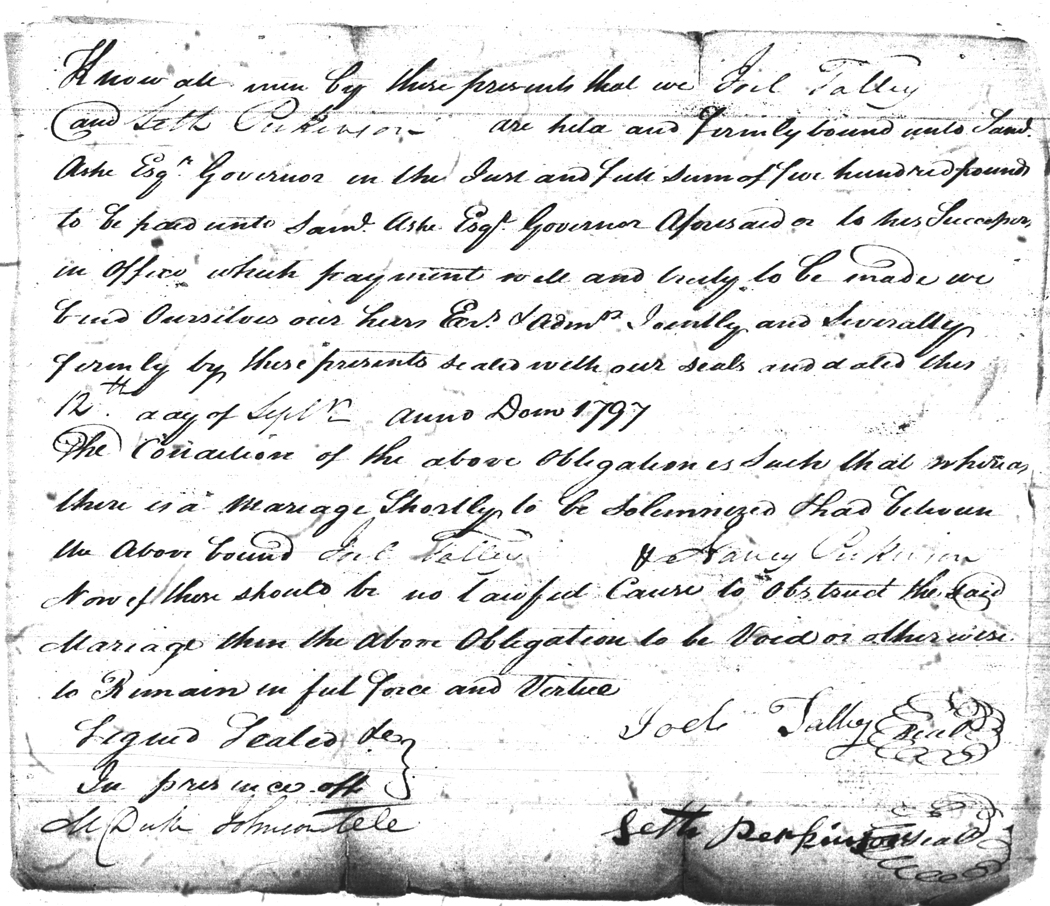 Know all men by these presents that we Joel Talley
and Seth Perkinson are held and firmly bound unto Saml.
Ashe Esqr. Governor in the Just and full sum of five hundred pounds
to be paid unto Saml. Ashe Esqr. Governor Aforesaid or to his Successors
in Office which payment well and truly to be made we
bind Ourselves our heirs Exrs. & Admrs. Jointly and Severally
firmly by these presents sealed with our seals and dated this
12th. day of Septr. anno Dom 1797
The Condition of the above Obligation is Such that whereas
there is a Mariage Shortly to be Solemnized & had between
the Above bound Joel Talley & Nancy Perkinson
Now if there should be no Lawful Cause to Obstruct the Said
Mariage then the Above Obligation to be Void or otherwise
to Remain in ful force and Virtue
Signed Sealed &c
In presence off
Joel Talley Seal
M Duke Johnson
Seth Perkinson Seal